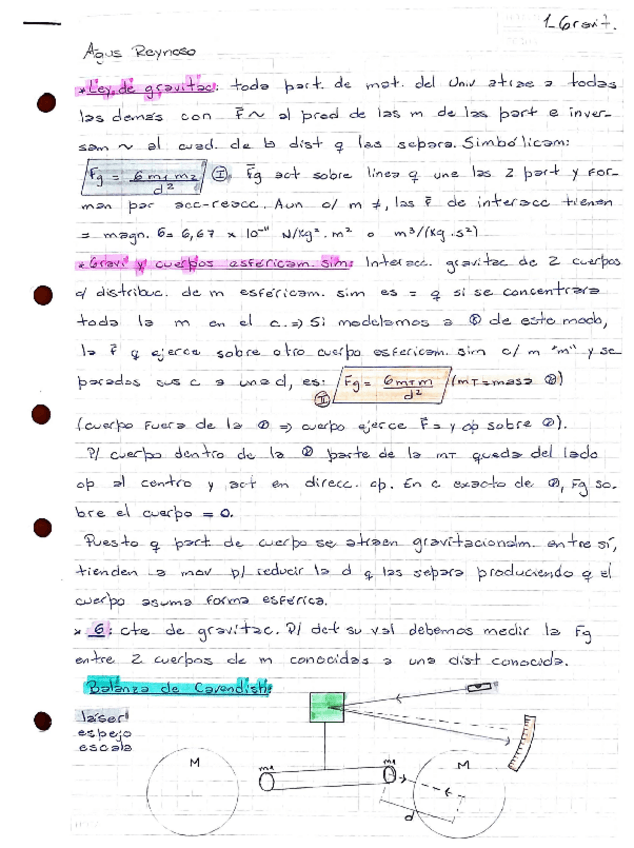 1_Gravit.
Agus Reynoso
*Ley de gravitac: toda part. de mat. del Univ atrae a todas
las demás con F⃗ ~ al prod de las m de las part e inver-
sam ~ al cuad. de la dist q las separa. Simbólicam:
Fg = G m1 m2 / d² (I). F⃗g act sobre linea q une las 2 part y for-
man par acc-reacc. Aun c/ m ≠, las F⃗ de interacc tienen
= magn. G = 6,67 × 10⁻¹¹ N/Kg². m² o m³/(Kg .s²)
*Gravi y cuerpos esféricam. sim: Interacc. gravitac de 2 cuerpos
c/ distribuc. de m esféricam. sim es = q si se concentrara
toda la m en el c. ⇒ Si modelamos a ⊕ de este modo,
la F⃗ q ejerce sobre otro cuerpo esfericam. sim c/ m "m" y se
parados sus c a una d, es: (II) Fg = G mT m / d² (mT = masa ⊕)
(cuerpo fuera de la ⊕ ⇒ cuerpo ejerce F⃗ = y op sobre ⊕).
P/ cuerpo dentro de la ⊕ parte de la mT queda del lado
op al centro y act en direcc. op. En c exacto de ⊕, Fg so-
bre el cuerpo = 0.
Puesto q part de cuerpo se atraen gravitacionalm. entre sí,
tienden a mov p/ reducir la d q las separa produciendo q el
cuerpo asuma forma esférica.
* G: cte de gravitac. P/ det su val debemos medir la Fg
entre 2 cuerpos de m conocidas a una dist conocida.
Balanza de Cavendish:
láser
espejo
escala
M
m1
m1
M
d